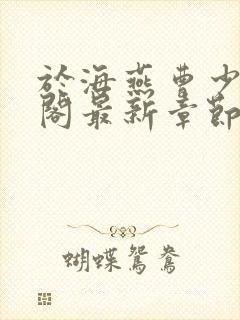 於海燕曹少
閣最新章節
蝴蝶鴛鴦